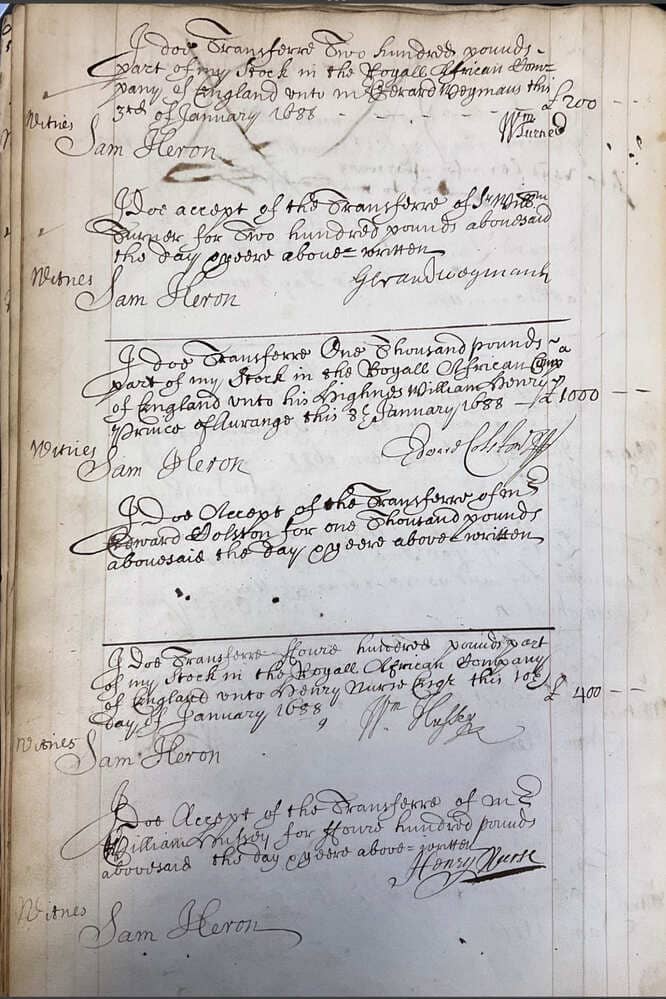 I doe Transferre Two hundred pounds
part of my Stock in the Royall African Com-
pany of England unto mr Gerard Wegmans this
3th of January 1688 - - - - - - £ 200
Witnes
Wm Turner
Sam Heron
I Doe accept of the Transferre of Sr William
Turner for Two hundred pounds abovesaid
the day & yeere above=written
Witnes
Gerard Wegmans
Sam Heron
I doe Transferre One Thousand pounds
part of my Stock in the Royall African Comp
of England unto his Highnes William Henry
Prince of Aurange this January 1688 - £ 1000
Witnes
Edward Colston
Sam Heron
I Doe Accept of the Transferre of mr
Edward Colston for one Thousand pounds
abovesaid the day & yeere above=written
I Doe Transferre ffoure hundred pounds part
of my Stock in the Royall African Company
of England unto Henry Nurse Esqr this 10th
day of January 1688 £ 400
Wm Hussey
Witnes
Sam Heron
I Doe Accept of the Transferre of mr
William Hussey for ffoure hundred pounds
abovesaid the day & yeere above=written
Henry Nurse
Witnes
Sam Heron